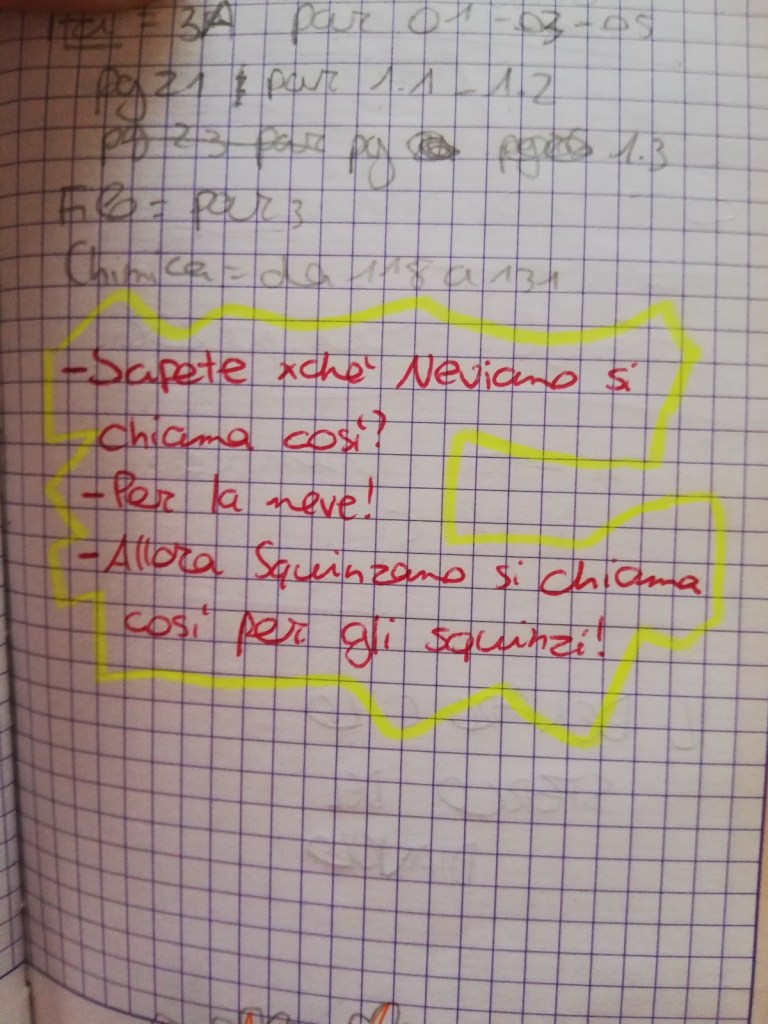 = 3A par 01-03-05
pg 21 par 1.1-1.2
pg 23 par pg 1.3
Filo = par 3
Chimica = da 118 a 131
-Sapete xchè Neviano si
chiama così?
-Per la neve!
-Allora Squinzano si chiama
così per gli squinzi!